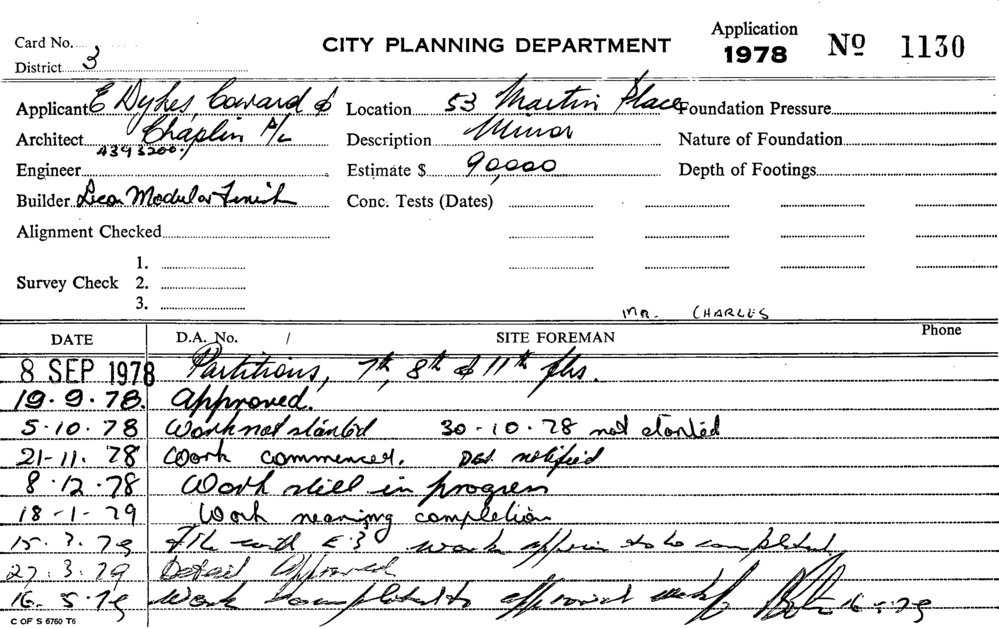 Application
Card No. CITY PLANNING DEPARTMENT 1978 No 1130
District 3
Applicant E Dykes, Coward & Location 53 Martin Place Foundation Pressure
Architect Chaplin P/L Description Minor Nature of Foundation
4393200
Engineer Estimate $ 90,000 Depth of Footings
Builder Modular Finish Conc. Tests (Dates)
Alignment Checked
1.
Survey Check 2.
3.
MR. CHARLES
DATE D.A. No. / SITE FOREMAN Phone
8 SEP 1978 Partitions, 7th, 8th & 11th flrs.
19.9.78. Approved.
5.10.78 Work not started 30-10-78 not started
21-11.78 Work commenced. notified
8.12.78 Work still in progress
18-1-79 Work nearing completion
15.3.79 File with E.3 work appears to be completed
27.3.79 Detail Approved
16.5.79 Work completed to approval
C OF S 6760 T6